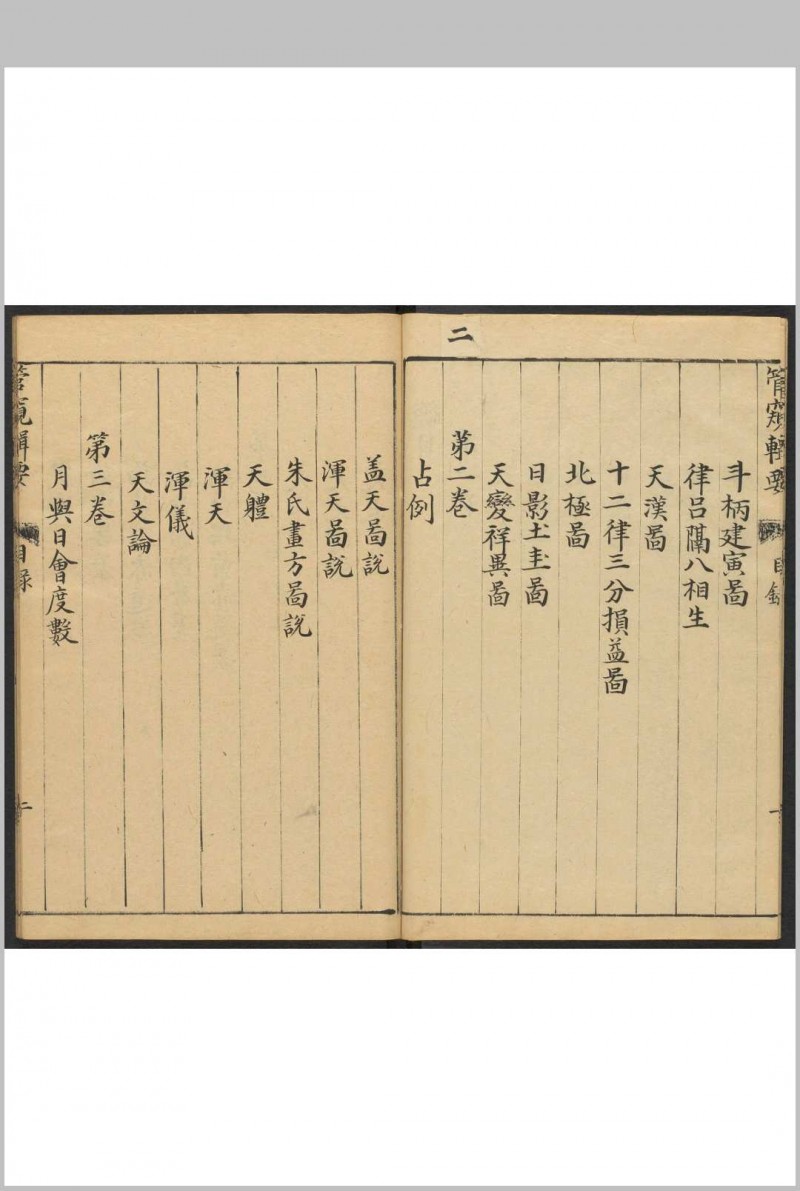 二
管窺輯要 目錄 一
斗柄建寅啚
律呂隔八相生
天漢啚
十二律三分損益啚
北極啚
日影土圭啚
天變祥異啚
第二卷
占例
盖天啚說
渾天啚說
朱氏畫方啚說
天軆
渾天
渾儀
天文論
第三卷
月與日會度數
管窺輯要 目錄 二